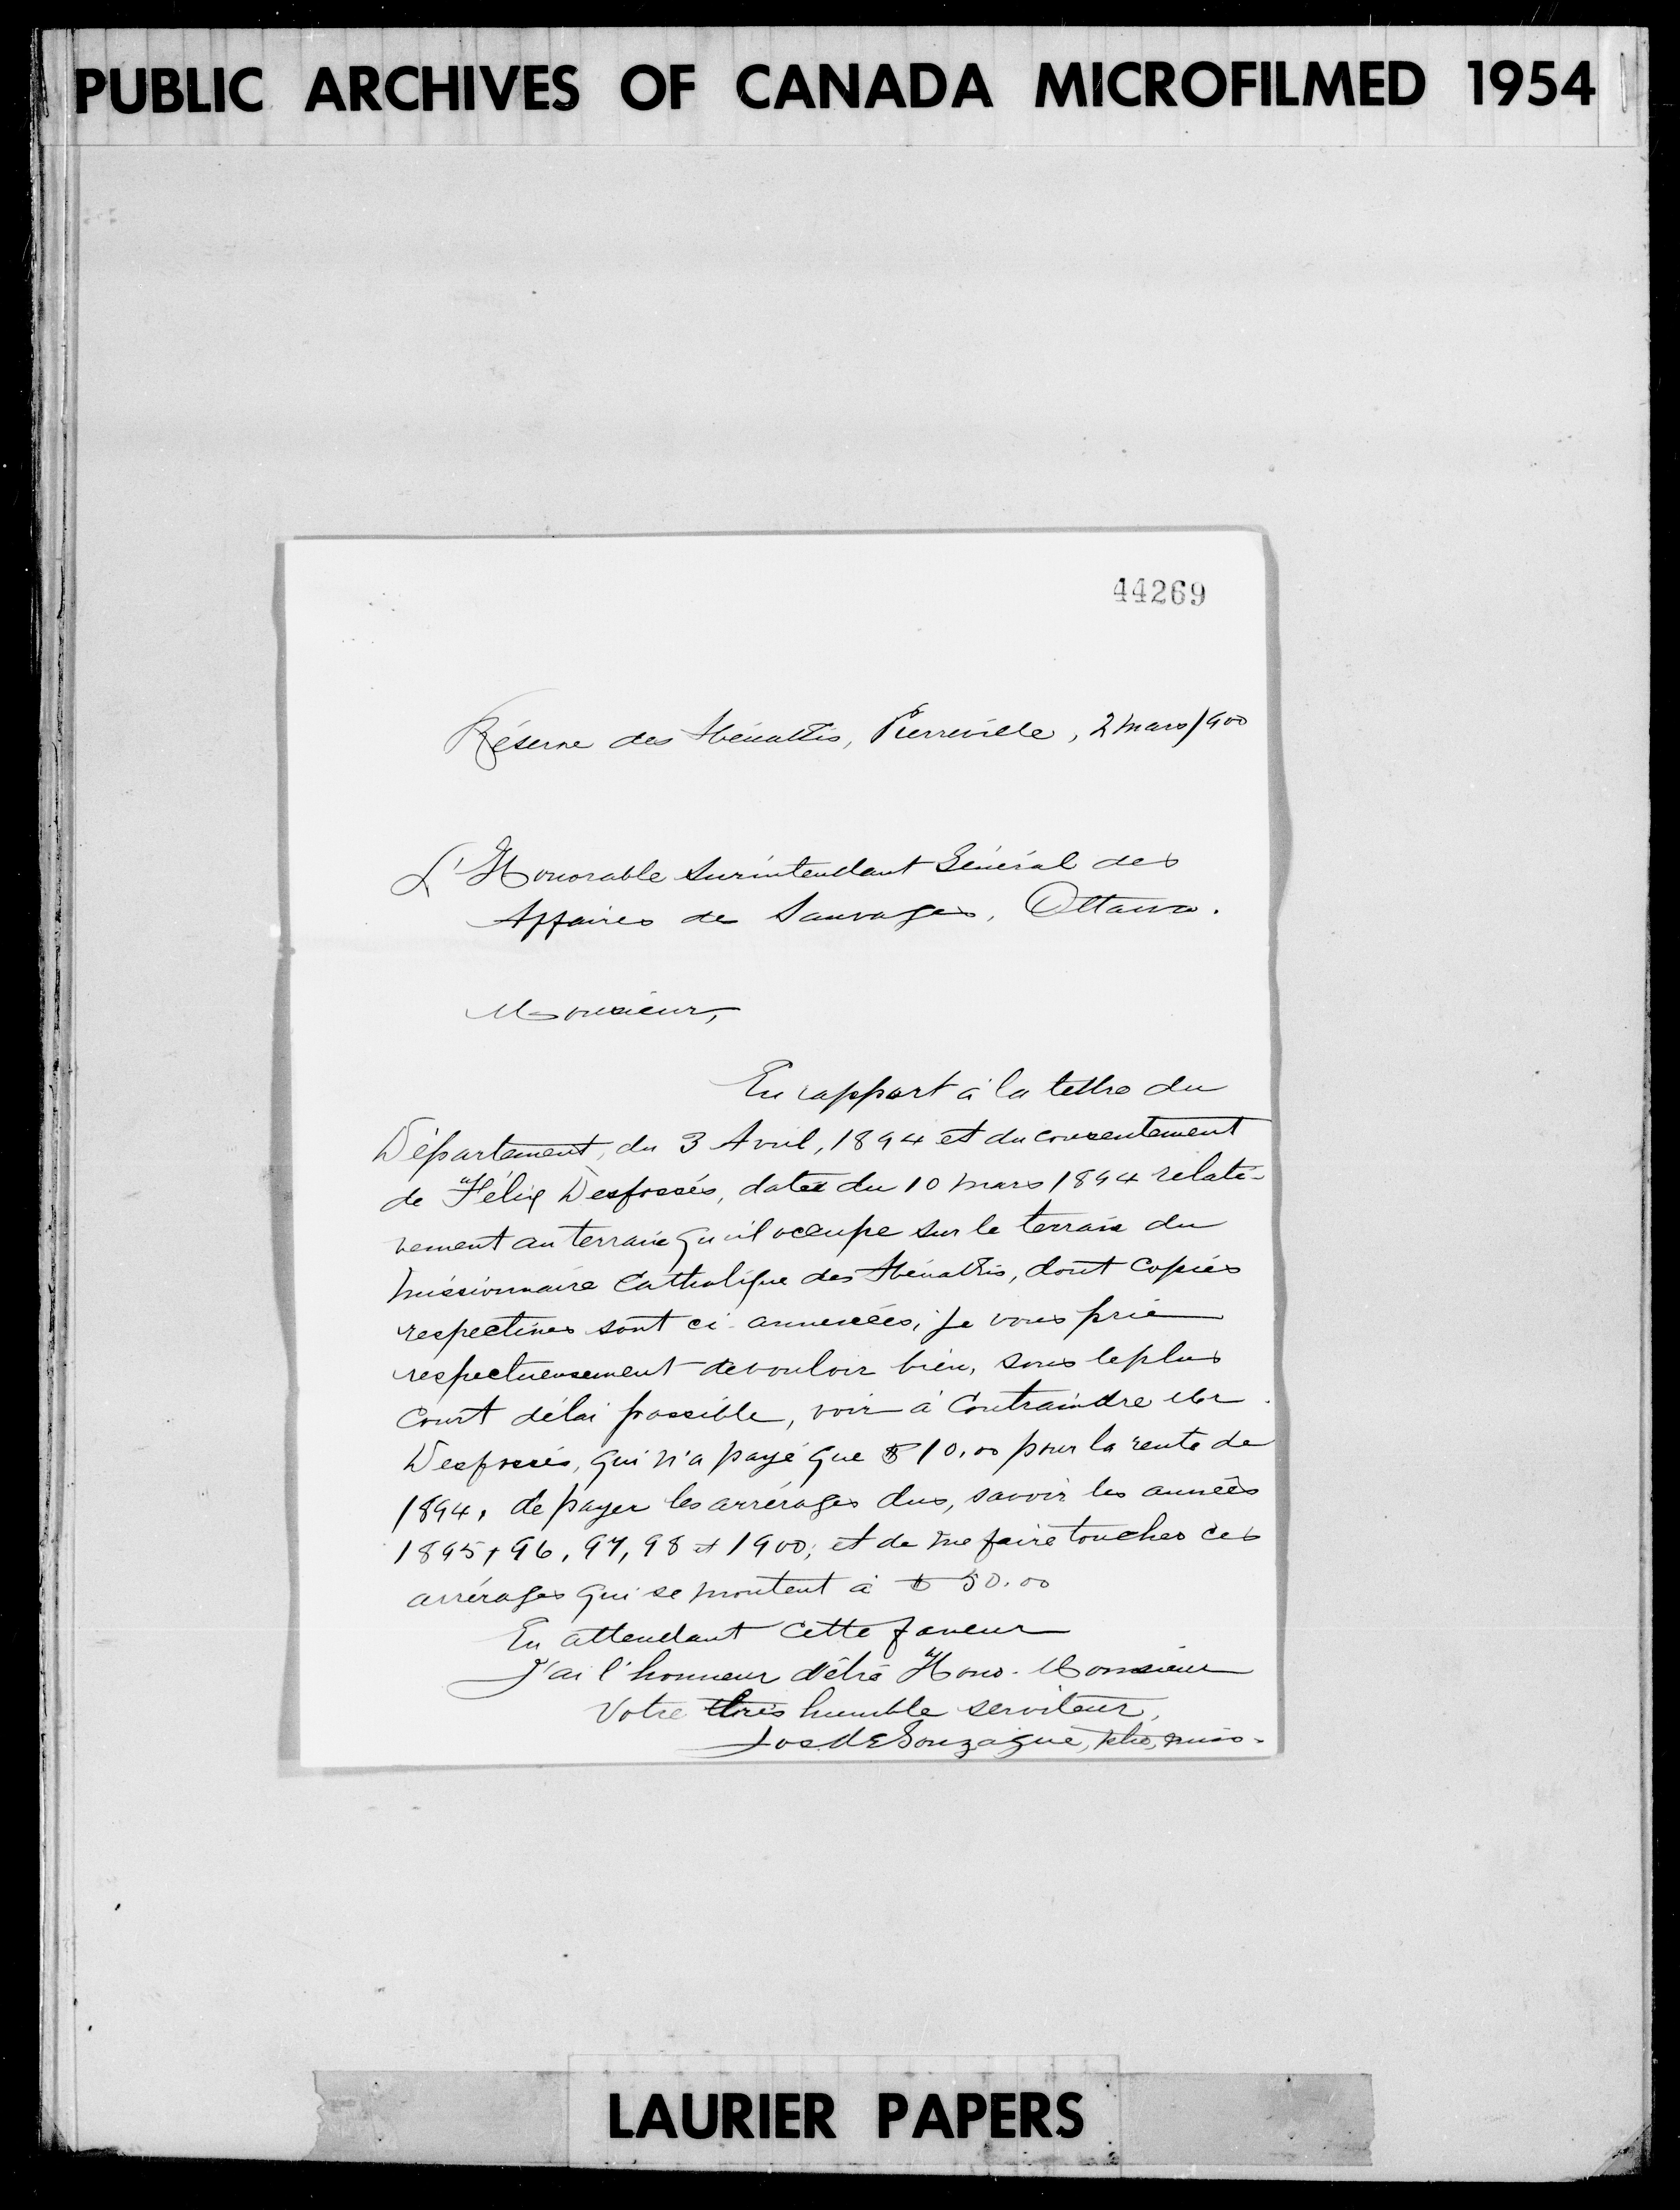 PUBLIC ARCHIVES OF CANADA MICROFILMED 1954
44269
Réserve des Abénakis, Pierreville, 2 mars/900
L'Honorable Surintendant Général des
Affaires de Sauvages, Ottawa.
Monsieur,
En rapport à la lettre du
Département, du 3 Avril, 1894 et du consentement
de Félix Desfossés, datée du 10 mars 1894 relati-
vement au terrain qu'il occupe sur le terrain du
missionnaire Catholique des Abénakis, dont copies
respectives sont ci-annexées, je vous prie
respectueusement de vouloir bien, sous le plus
court délai possible, voir à Contraindre Mr
Desfossés, qui n'a payé que $10.00 pour la rente de
1894, de payer les arrérages dus, savoir les années
1895, 96, 97, 98 et 1900; et de me faire toucher ces
arrérages qui se montent à $50.00
En attendant cette faveur
J'ai l'honneur d'être Hono. Monsieur
Votre très humble serviteur,
Jos. de Gonzague, ptre, miss.
LAURIER PAPERS